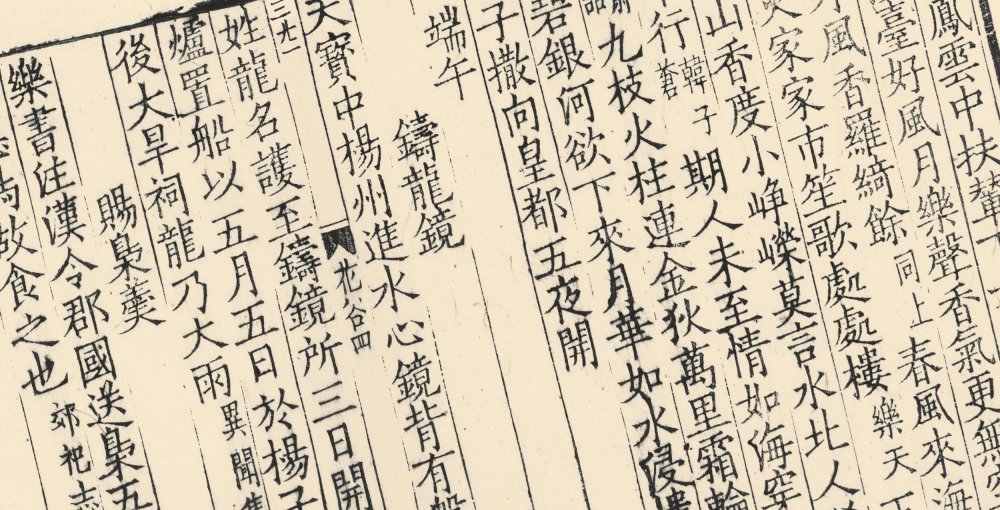 鳳雲中扶輦下
臺好風月樂聲香氣更無
風香羅綺餘同上春風來海
家家市笙歌處處樓樂天
山香度小崢嶸莫言水北人
行韓子蒼期人未至情如海穿
九枝火柱連金狄萬里霜輪
碧銀河欲下來月華如水浸
子撒向皇都五夜開
端午
鑄龍鏡
天寶中楊州進水心鏡背有盤
花谷四
姓龍名護至鑄鏡所三日開
爐置船以五月五日於楊子
後大旱祠龍乃大雨異聞集
賜梟羹
樂書注漢令郡國送梟五
為故食之也郊祀志